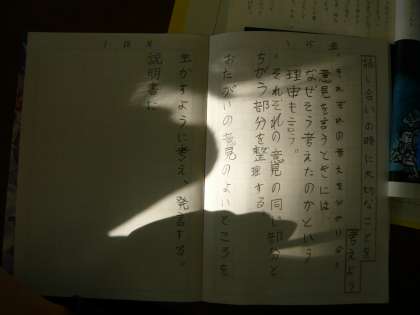 1.15 金
話し合いの時に大切なことを
考えよう
・それぞれの考えを
意見を言うときには、
なぜそう考えたのかという
理由も言う。
・それぞれの意見の同じ部分と
ちがう部分を整理する
おたがいの意見のよいところを
1.18 月
生かすように考え、発言する。
説明書に